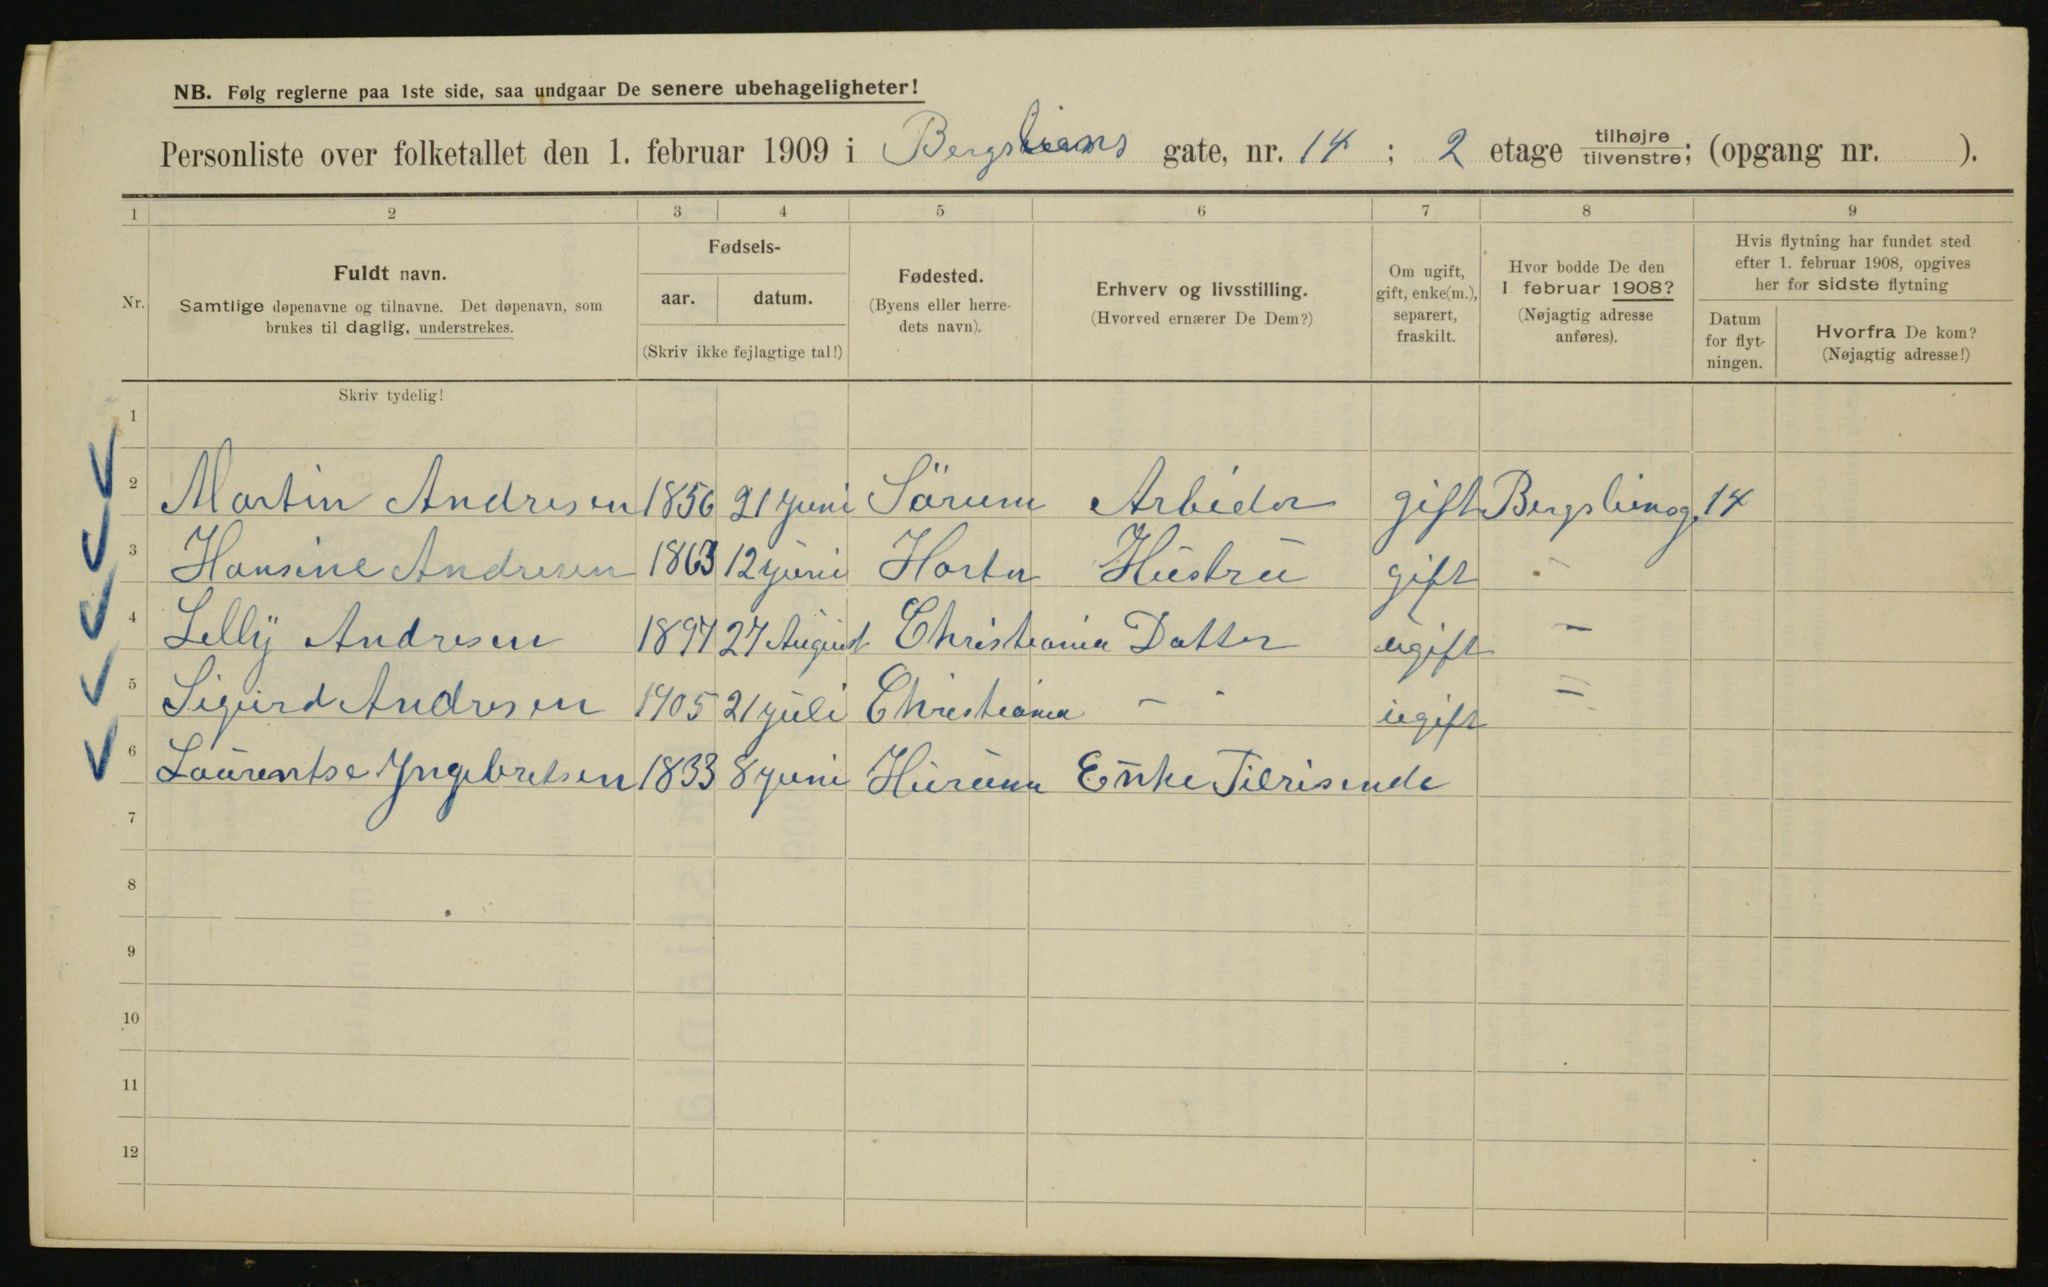 NB. Følg reglerne paa 1ste side, saa undgaar De senere ubehageligheter!
Personliste over folketallet den 1. februar 1909 i Bergsliens gate, nr. 14 ; 2 etage tilhøjre/tilvenstre; (opgang nr. ).
1 2 3 4 5 6 7 8 9
Nr.
Fuldt navn.
Samtlige døpenavne og tilnavne. Det døpenavn, som
brukes til daglig, understrekes.
Skriv tydelig!
Fødsels-
aar. datum.
(Skriv ikke fejlagtige tal!)
Fødested.
(Byens eller herre-
dets navn).
Erhverv og livsstilling.
(Hvorved ernærer De Dem?)
Om ugift,
gift, enke(m.),
separert,
fraskilt.
Hvor bodde De den
1 februar 1908?
(Nøjagtig adresse
anføres).
Hvis flytning har fundet sted
efter 1. februar 1908, opgives
her for sidste flytning
Datum
for flyt-
ningen.
Hvorfra De kom?
(Nøjagtig adresse!)
1
2 Martin Andresen 1856 21 juni Sörum Arbeider gift Bergslieng. 14
3 Hansine Andresen 1863 12 juni Horten Hustru gift -
4 Lelly Andresen 1897 27 August Christiania Datter ugift -
5 Sigurd Andresen 1905 21 juli Christiania - - ugift =
6 Laurentse Yngebretsen 1833 8 juni Hurum Enke
7
8
9
10
11
12